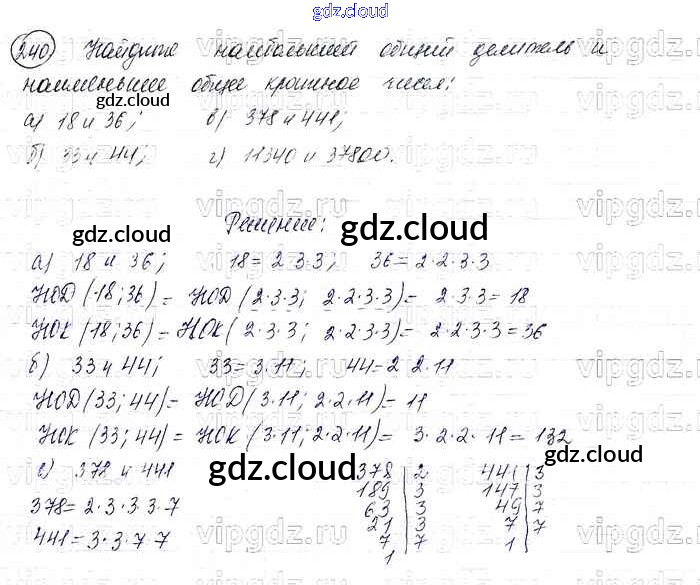 gdz.cloud
240 Найдите наибольший общий делитель и
наименьшее общее кратное чисел:
gdz.cloud
а) 18 и 36; в) 378 и 441;
б) 33 и 44; г) 11340 и 37800.
Решение:
gdz.cloud
gdz.cloud
а) 18 и 36; 18=2·3·3; 36=2·2·3·3
НОД(18;36)= НОД(2·3·3; 2·2·3·3)= 2·3·3=18
НОК(18;36)=НОК(2·3·3; 2·2·3·3)= 2·2·3·3=36
б) 33 и 44; 33=3·11; 44=2·2·11
НОД(33;44)= НОД(3·11; 2·2·11)= 11
НОК(33;44)= НОК(3·11; 2·2·11)= 3·2·2·11=132
в) 378 и 441 378|2 441|3
gdz.cloud
gdz.cloud
378=2·3·3·3·7 189|3 147|3
63|3 49|7
21|3 7|7
441=3·3·7·7 7|7 1
1
vipgdz.ru